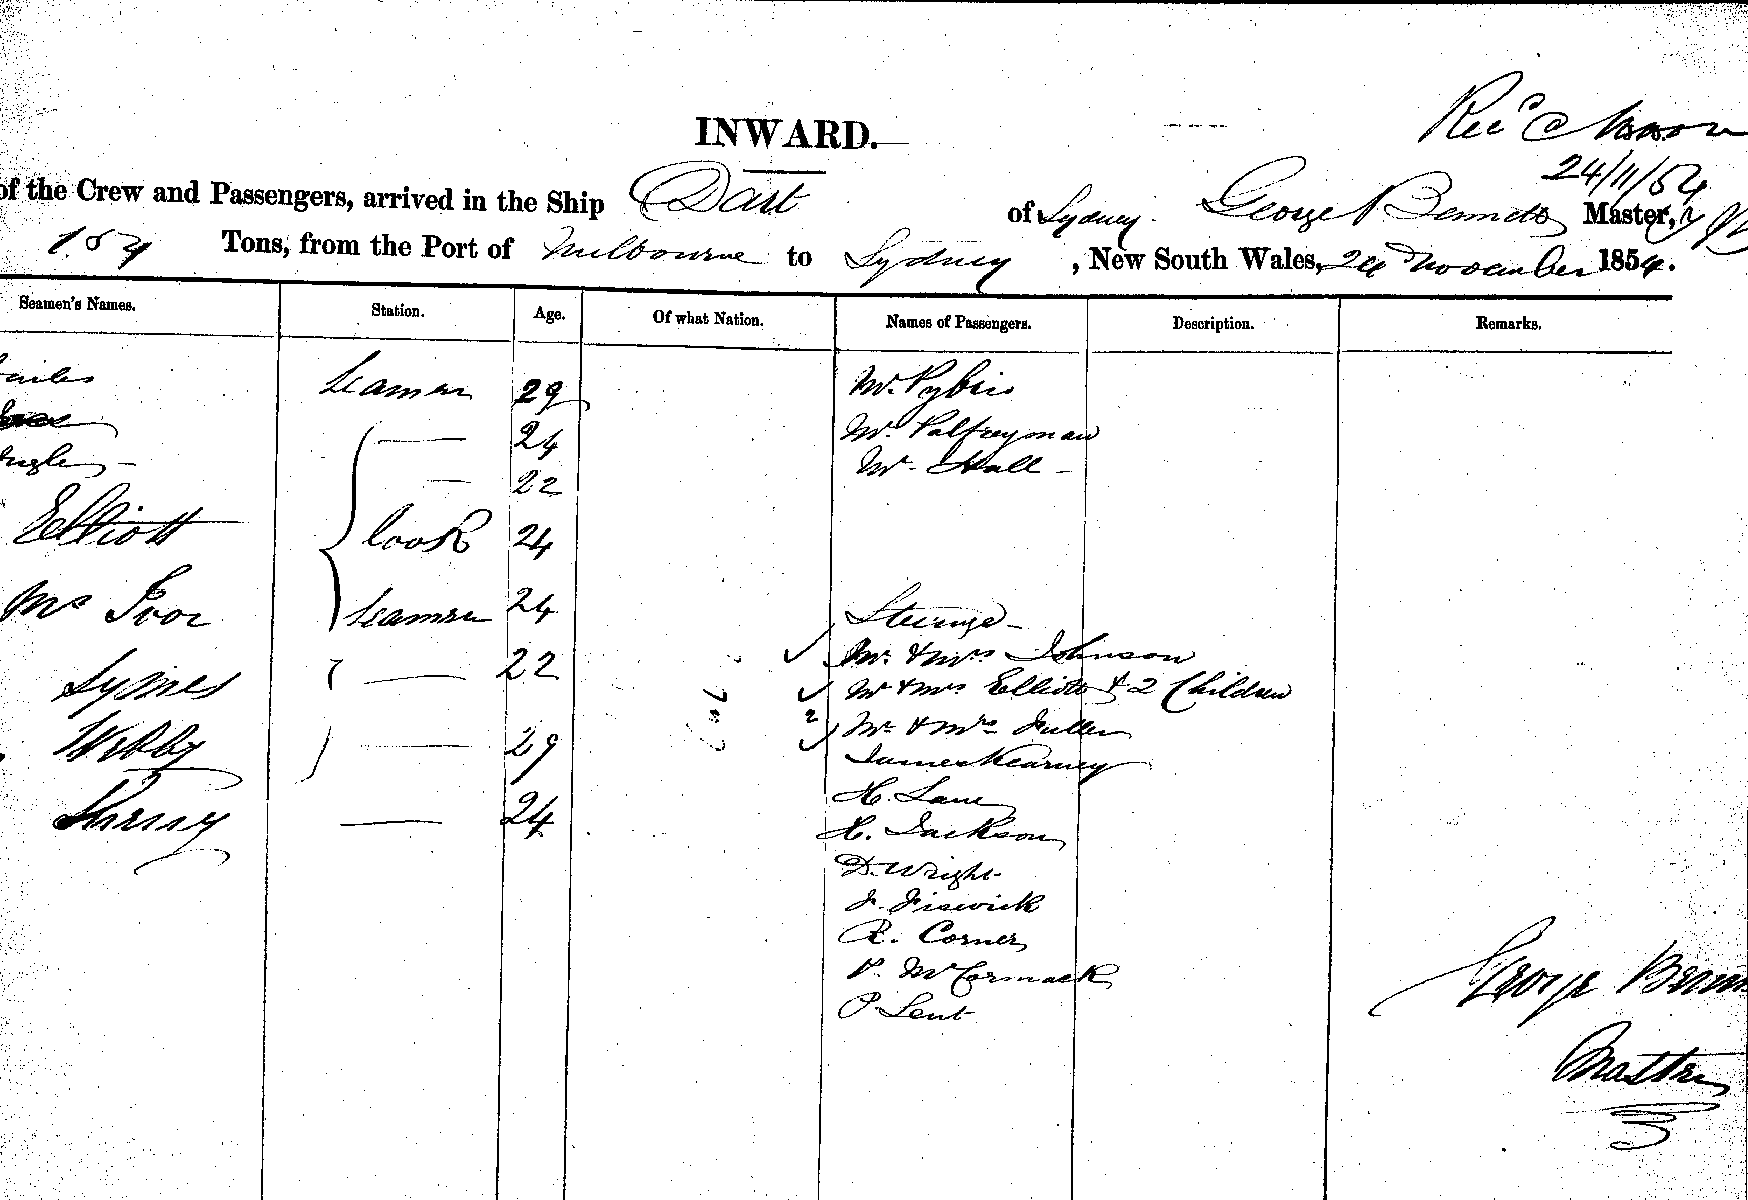 INWARD.
24/11/54
of the Crew and Passengers, arrived in the Ship Dart of Sydney. George Bennett Master,
154 Tons, from the Port of Melbourne to Sydney, New South Wales, 24 November 1854.
Seamen's Names. Station. Age. Of what Nation. Names of Passengers. Description. Remarks.
Seaman 29 Mr. Pybus
24 Mr. Palfreyman
22 Mr. Hall
Elliott Cook 24
Mc Ivor Seaman 24 Steerage
Mr. & Mrs Johnson
Symes 22 Mr & Mrs Elliott & 2 Children
Webby 29 Mr & Mrs Fuller
James Kearney
H. Lane
24 H. Jackson
D. Wright
J. Fiswick
R. Corner
P. McCormack
P Lent
George
Master